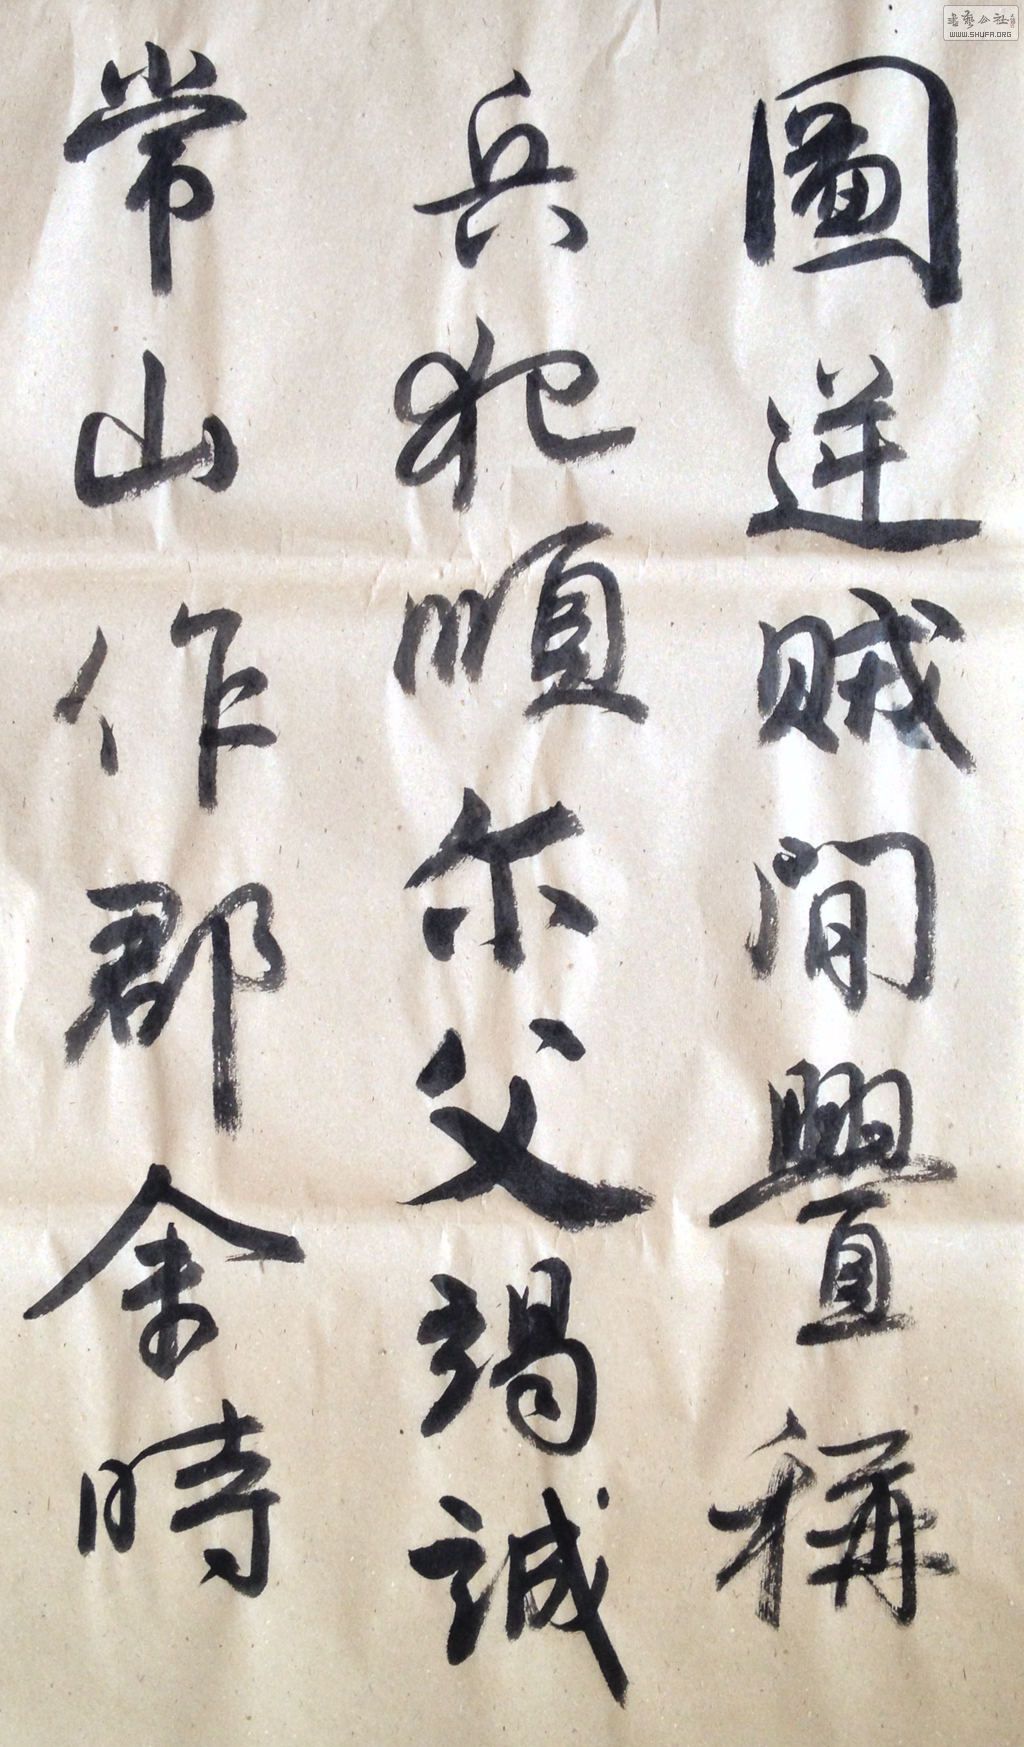 圖逆賊閒舋稱
兵犯順尔父竭誠
常山作郡余時
书艺公社
WWW.SHUFA.ORG